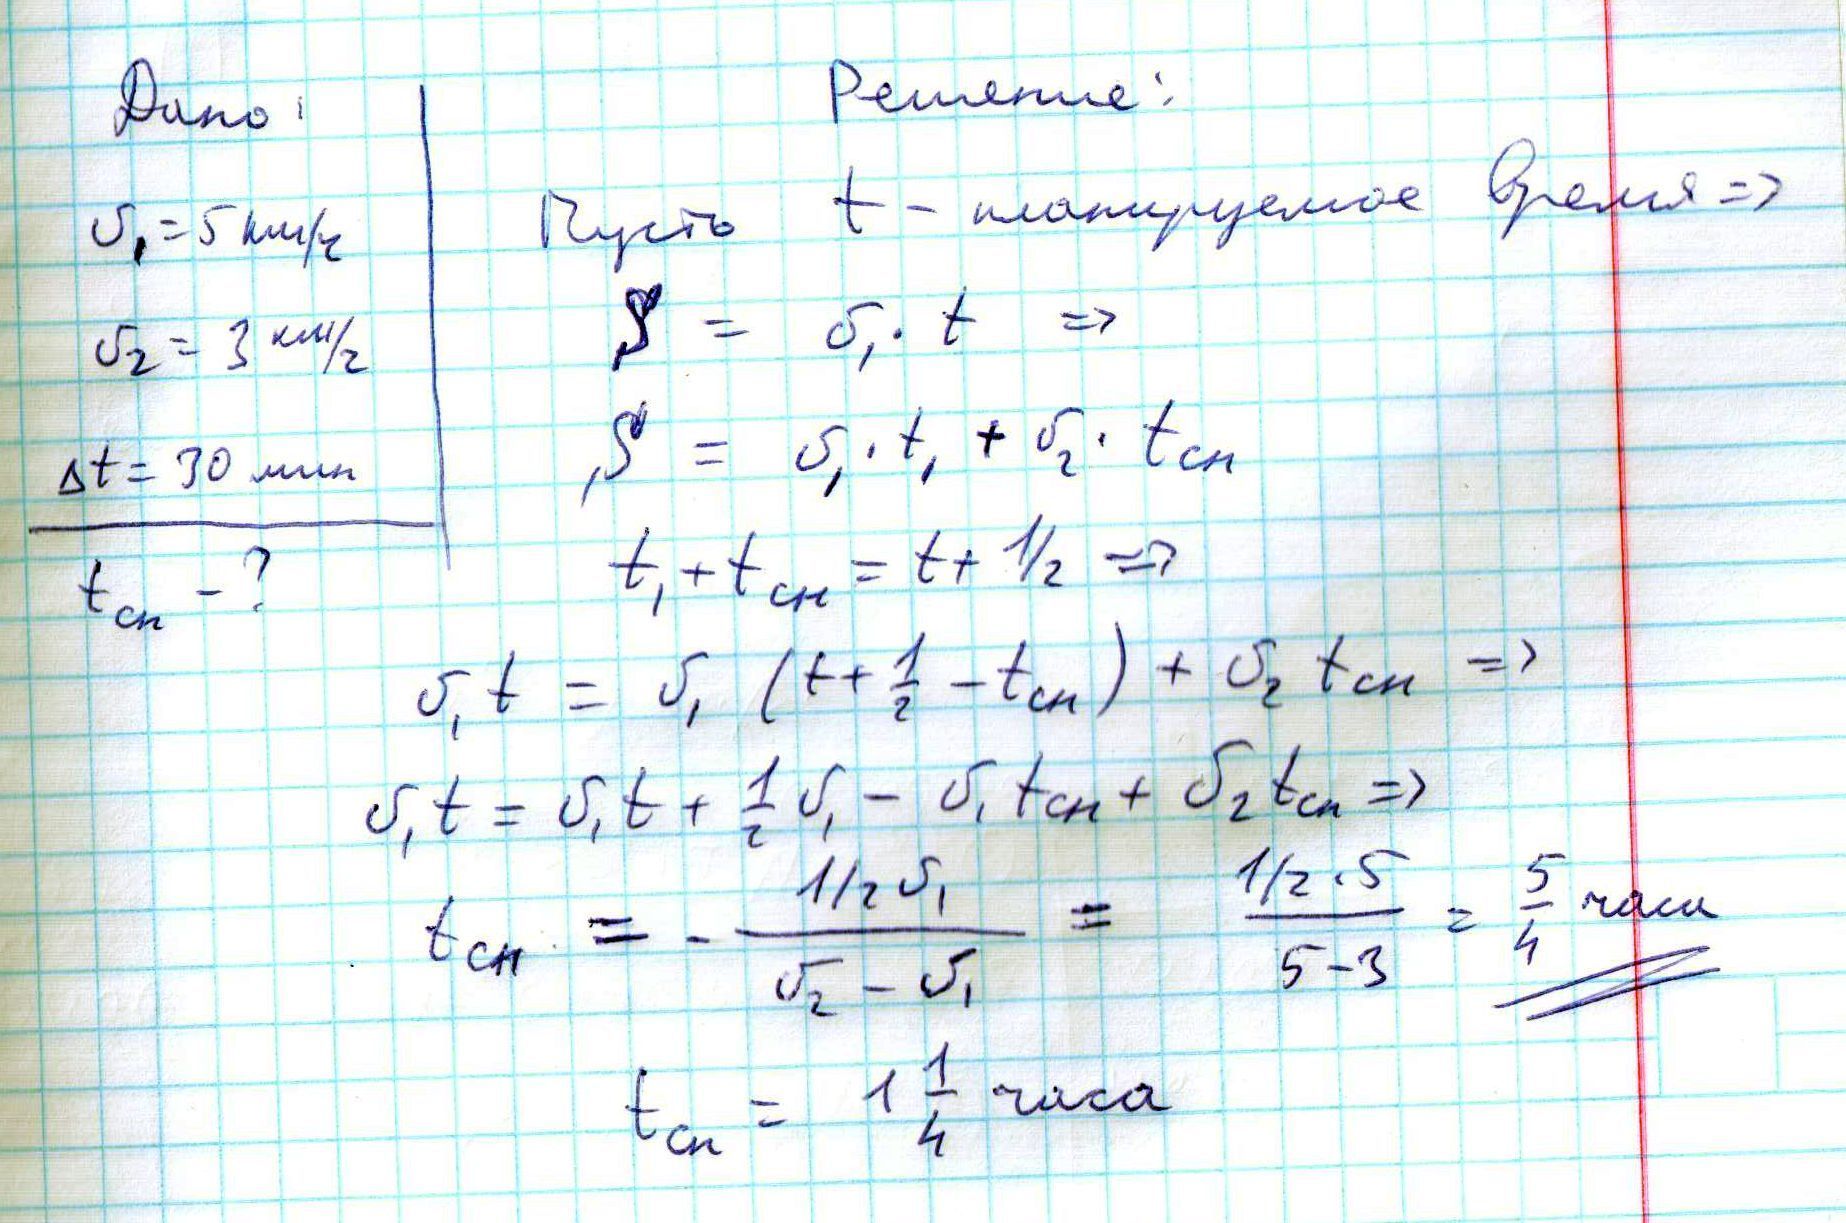 Дано:
υ₁ = 5 км/ч
υ₂ = 3 км/ч
Δt = 30 мин
tсн - ?
Решение:
Пусть t - планируемое время =>
S = υ₁ · t =>
S = υ₁ · t₁ + υ₂ · tсн
t₁ + tсн = t + 1/2 =>
υ₁t = υ₁ (t + 1/2 - tсн) + υ₂ tсн =>
υ₁t = υ₁t + 1/2 υ₁ - υ₁tсн + υ₂tсн =>
tсн = - (1/2 υ₁)/(υ₂ - υ₁) = (1/2 · 5)/(5 - 3) = 5/4 часа
tсн = 1 1/4 часа